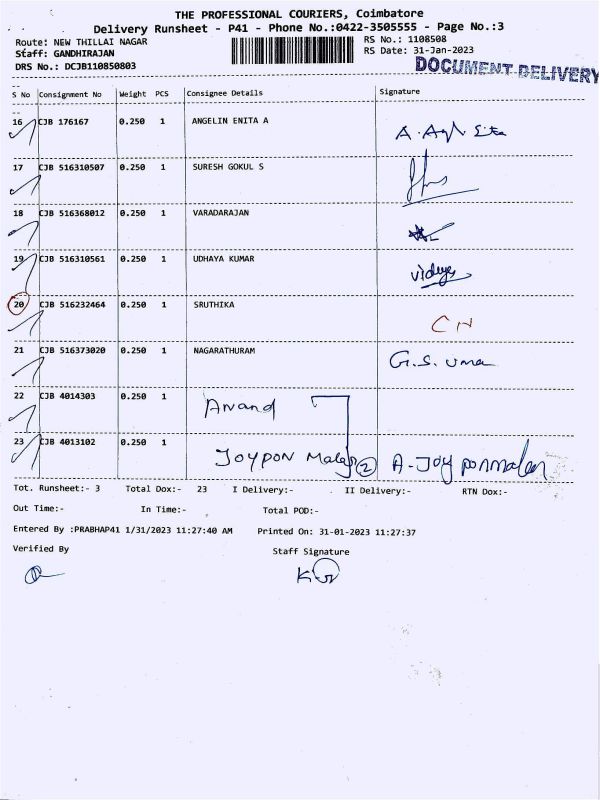 THE PROFESSIONAL COURIERS, Coimbatore
Delivery Runsheet - P41 - Phone No.:0422-3505555 - Page No.:3
Route: NEW THILLAI NAGAR RS No.: 1108508
Staff: GANDHIRAJAN RS Date: 31-Jan-2023
DRS No.: DCJB110850803 DOCUMENT DELIVERY
S No Consignment No Weight PCS Consignee Details Signature
16 CJB 176167 0.250 1 ANGELIN ENITA A
17 CJB 516310507 0.250 1 SURESH GOKUL S
18 CJB 516368012 0.250 1 VARADARAJAN
19 CJB 516310561 0.250 1 UDHAYA KUMAR
20 CJB 516232464 0.250 1 SRUTHIKA CN
21 CJB 516373020 0.250 1 NAGARATHURAM G.S. uma
22 CJB 4014303 0.250 1 Anand
23 CJB 4013102 0.250 1 JOYPON 2 A-Joy
Tot. Runsheet:- 3 Total Dox:- 23 I Delivery:- II Delivery:- RTN Dox:-
Out Time:- In Time:- Total POD:-
Entered By :PRABHAP41 1/31/2023 11:27:40 AM Printed On: 31-01-2023 11:27:37
Verified By Staff Signature